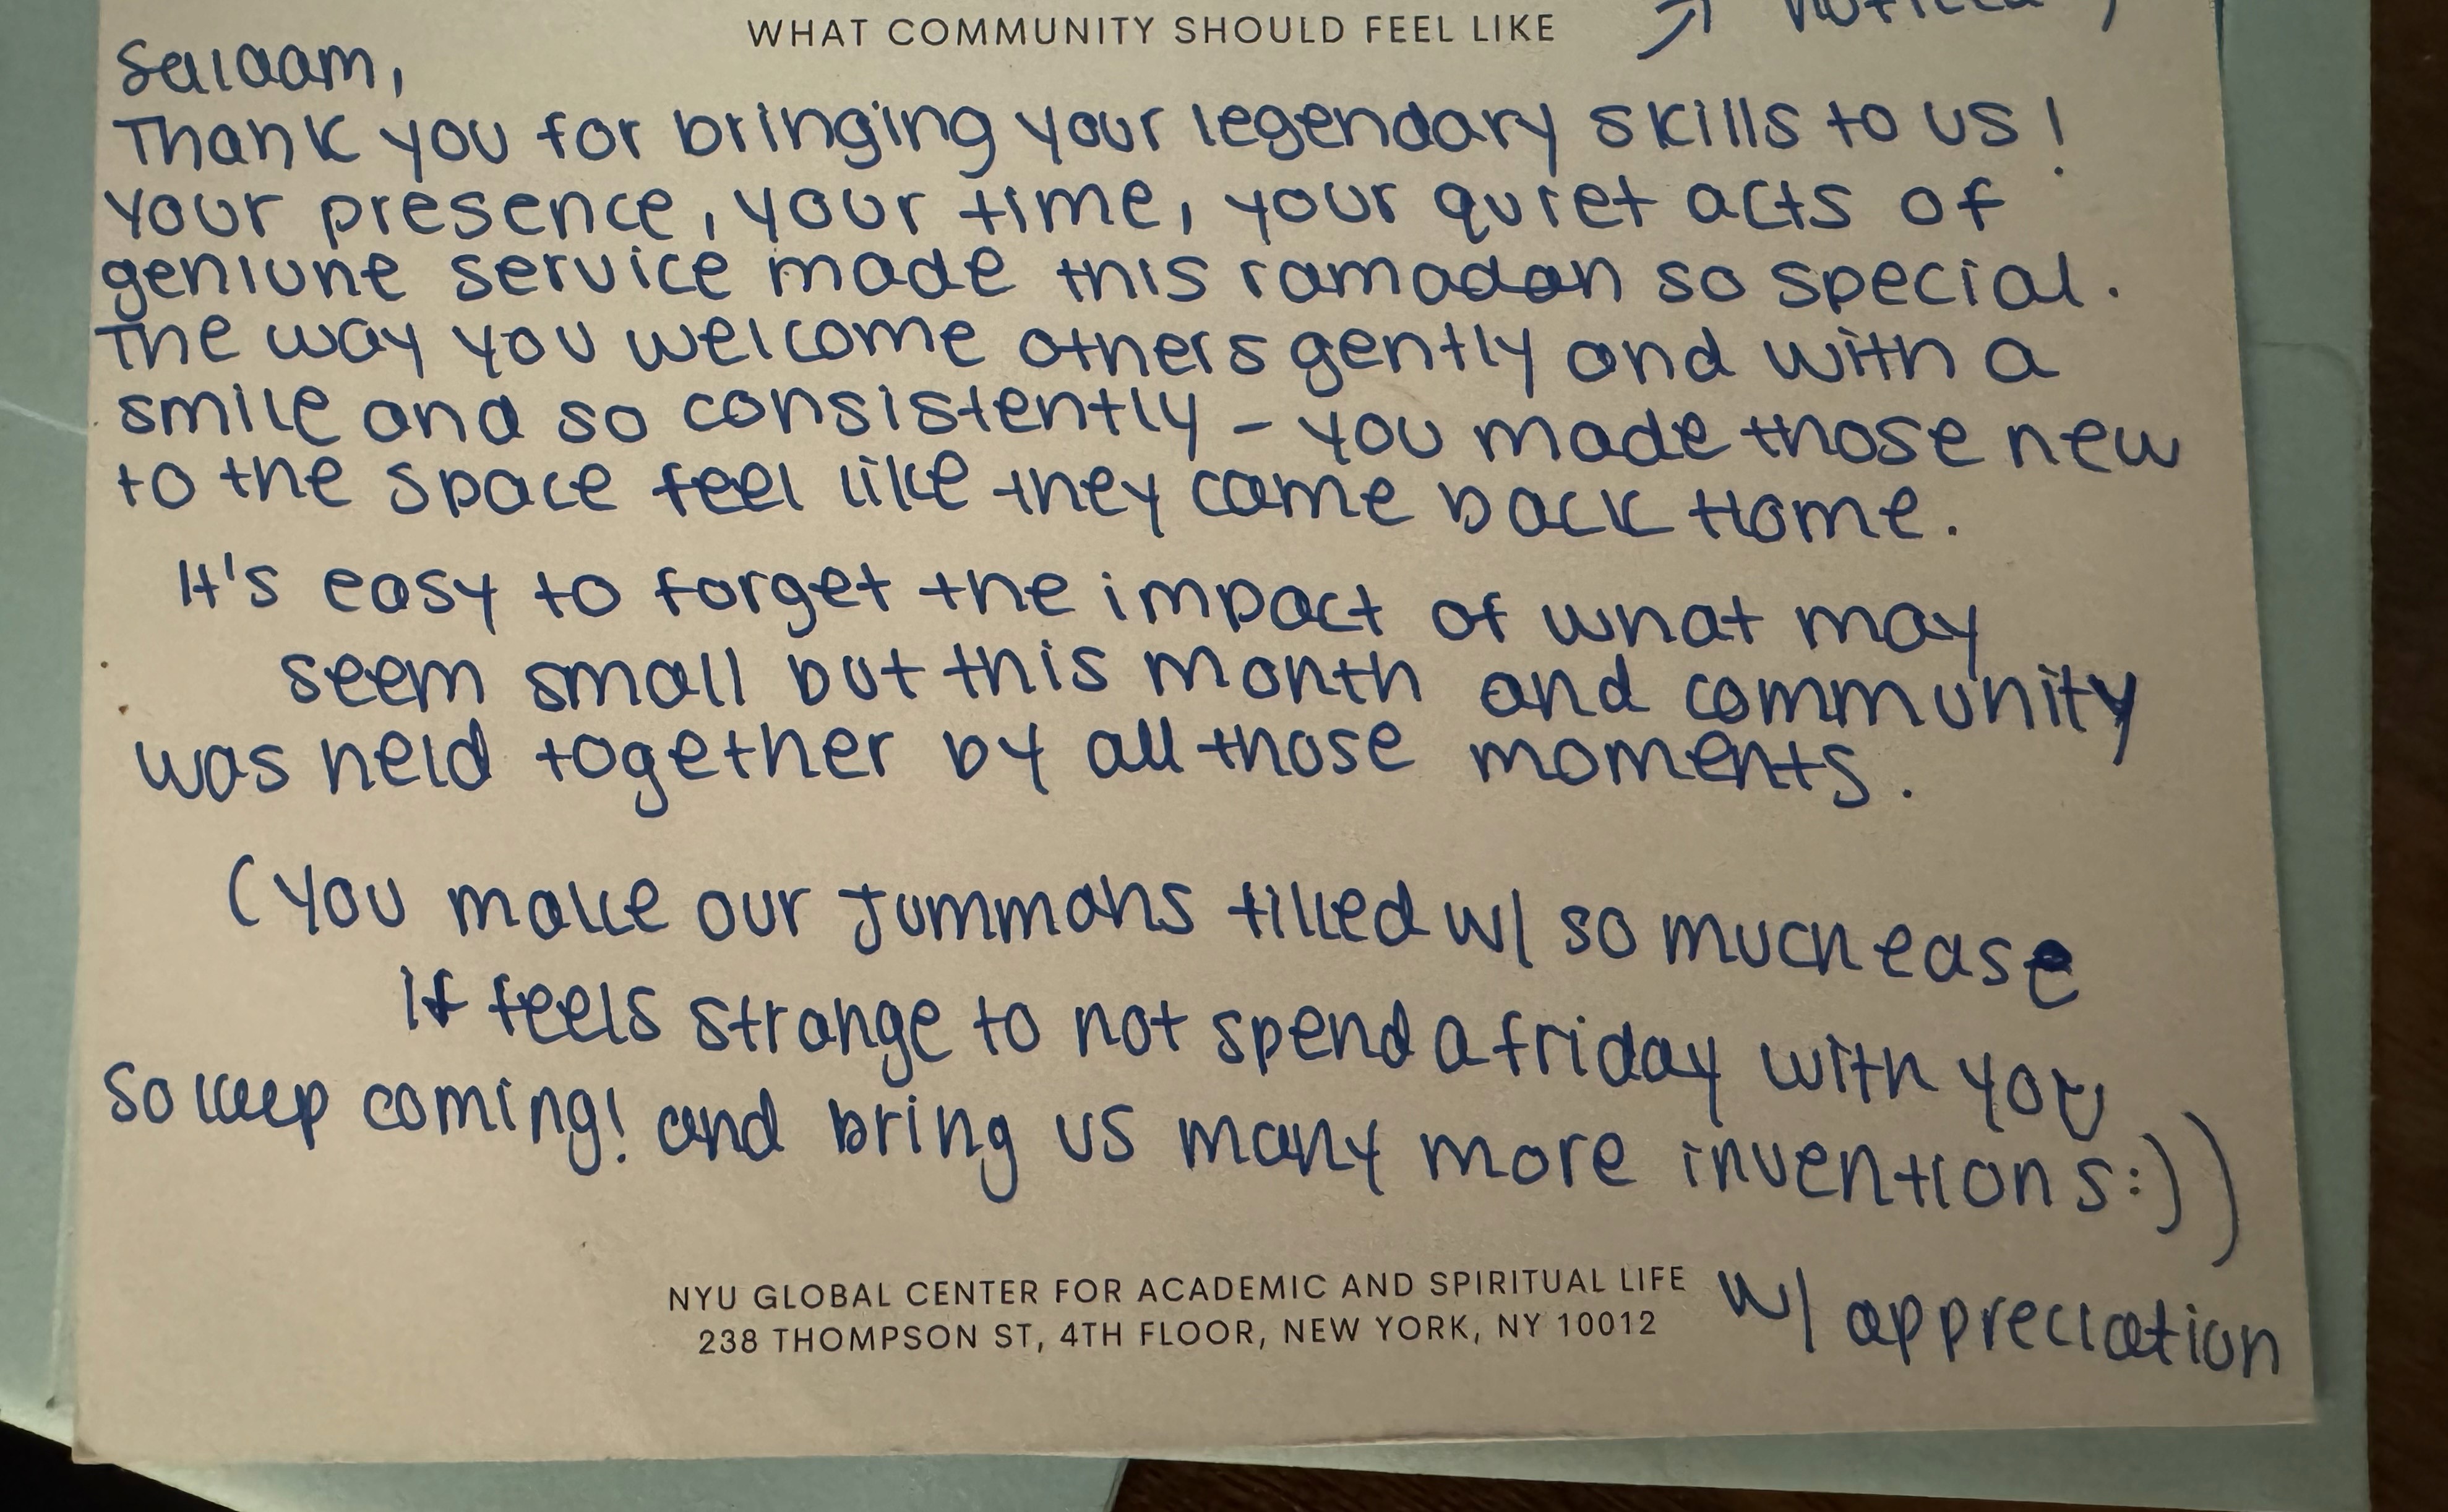 WHAT COMMUNITY SHOULD FEEL LIKE
Salaam,
Thank you for bringing your legendary skills to us!
Your presence, your time, your quiet acts of
geniune service made this ramadan so special.
The way you welcome others gently and with a
smile and so consistently - you made those new
to the space feel like they came back Home.
It's easy to forget the impact of what may
seem small but this month and community
was held together by all those moments.
(You make our Jummahs filled w/ so much ease
It feels strange to not spend a friday with you
So keep coming! and bring us many more inventions:))
NYU GLOBAL CENTER FOR ACADEMIC AND SPIRITUAL LIFE
238 THOMPSON ST, 4TH FLOOR, NEW YORK, NY 10012
w/ appreciation